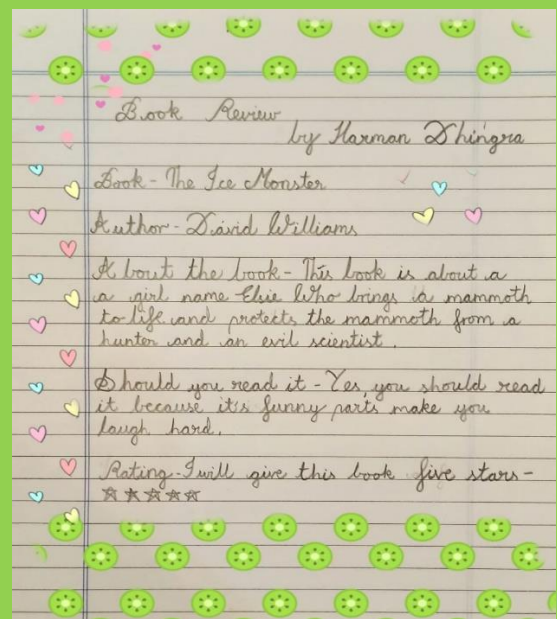 Book Review
by Harman Dhingra
Book - The Ice Monster
Author - David Williams
About the book - This book is about a
a girl name Elsie Who brings a mammoth
to life and protects the mammoth from a
hunter and an evil scientist.
Should you read it - Yes, you should read
it because it's funny parts make you
laugh hard.
Rating - I will give this book five stars -
☆☆☆☆☆